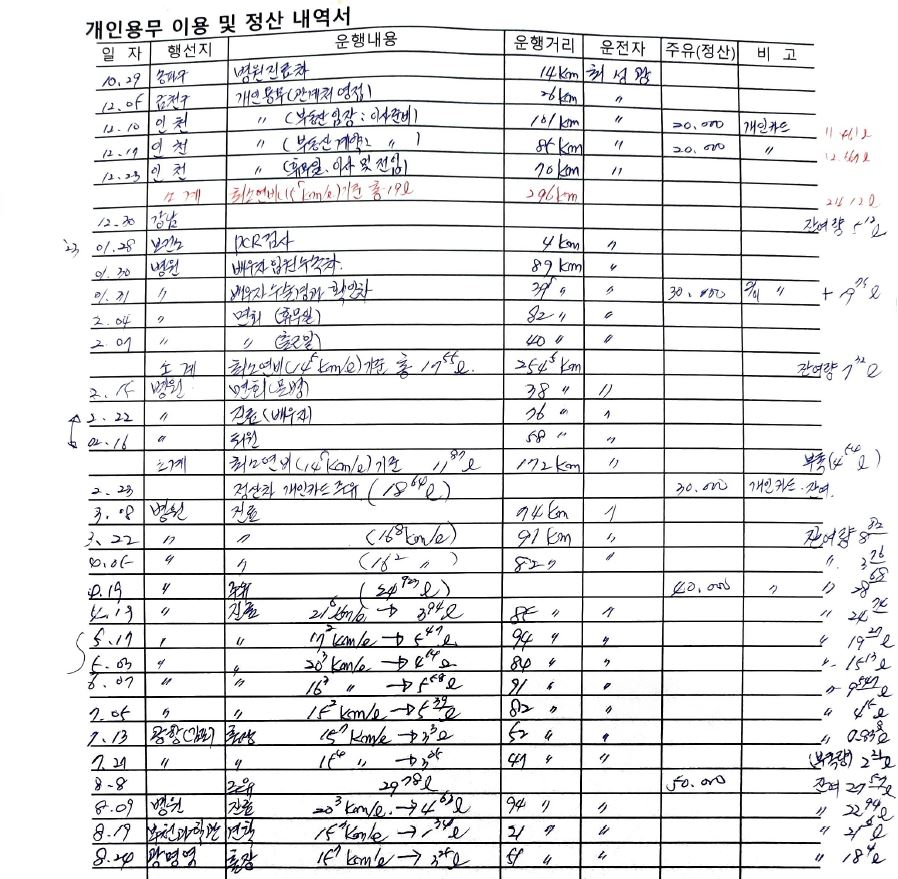 개인용무 이용 및 정산 내역서
일 자 행선지 운행내용 운행거리 운전자 주유(정산) 비 고
10.29 송파구 병원진료차 14km 최성
12.05 금천구 개인용무(관계처 영접) 26km 〃
12.10 인천 〃 (부동산 임장: 이사준비) 101km 〃 20.000 개인카드
12.17 인천 〃 (부동산 계약: 〃 ) 85km 〃 20.000 〃
12.23 인천 〃 (휴무일. 이사 및 전입) 70km 〃
소계 최소연비 기준 총 19ℓ 296km
12.30 강남 잔여량 5¹²ℓ
'23 01.28 보건소 PCR검사 4km 〃
01.30 병원 배우자 입원수속차. 89km 〃
01.31 〃 배우자 수술경과 확인차 39⁵ 〃 〃 30.000 〃 + 19⁷⁵ℓ
2.04 〃 면회 (휴무일) 82 〃 〃
2.07 〃 〃 (휴무일) 40 〃 〃
소계 최소연비(14⁵km/ℓ)기준 총 17⁵⁵ℓ. 254⁵km 잔여량 7³²ℓ
2.15 병원 면회(문병) 38 〃 〃
2.22 〃 진료(배우자) 76 〃 〃
02.16 〃 퇴원 58 〃 〃
소계 최소연비(14⁵km/ℓ)기준 11⁸⁷ℓ 172km 〃 부족(4⁵⁴ℓ)
2.23 정산차 개인카드 주유 (18⁶⁴ℓ) 30.000 개인카드. 잔여.
3.08 병원 진료 94km 〃
3.22 〃 〃 (16⁸km/ℓ) 91km 〃 잔여량 8⁸²
4.05 〃 〃 (16² 〃) 82 〃 〃 〃 3⁷⁶
4.19 〃 주유 (24⁹²³ℓ) 40.000 〃 〃 28⁶⁸
4.19 〃 진료 21⁶km/ℓ → 3⁹⁴ℓ 85 〃 〃 〃 24⁷⁴
5.17 〃 〃 17²km/ℓ → 5⁴⁷ℓ 94 〃 〃 〃 19²⁷ℓ
5.03 〃 〃 20³km/ℓ → 4¹⁴ℓ 84 〃 〃 〃 15¹³ℓ
6.07 〃 〃 16³ 〃 → 5⁵⁸ℓ 91 〃 〃 〃 9⁵⁴⁷ℓ
7.05 〃 〃 15²km/ℓ → 5³⁹ℓ 82 〃 〃 〃 4¹⁵ℓ
7.13 공항(김포) 출장 15⁷km/ℓ → 3³ℓ 52 〃 〃 〃 0.838ℓ
7.21 〃 〃 15⁴ 〃 → 47 〃 〃 (부족량) 2²¹ℓ
8.8 주유 29⁷⁸ℓ 50.000 잔여 27⁵⁷ℓ
8.09 병원 진료 20³km/ℓ → 4⁶³ℓ 94 〃 〃 〃 22⁹⁴ℓ
8.19 부천과학관 견학 15⁷km/ℓ → 1³⁴ℓ 21 〃 〃 〃 21⁶ℓ
8.24 광명역 출장 15⁷km/ℓ → 3²⁵ℓ 51 〃 〃 〃 18⁴ℓ